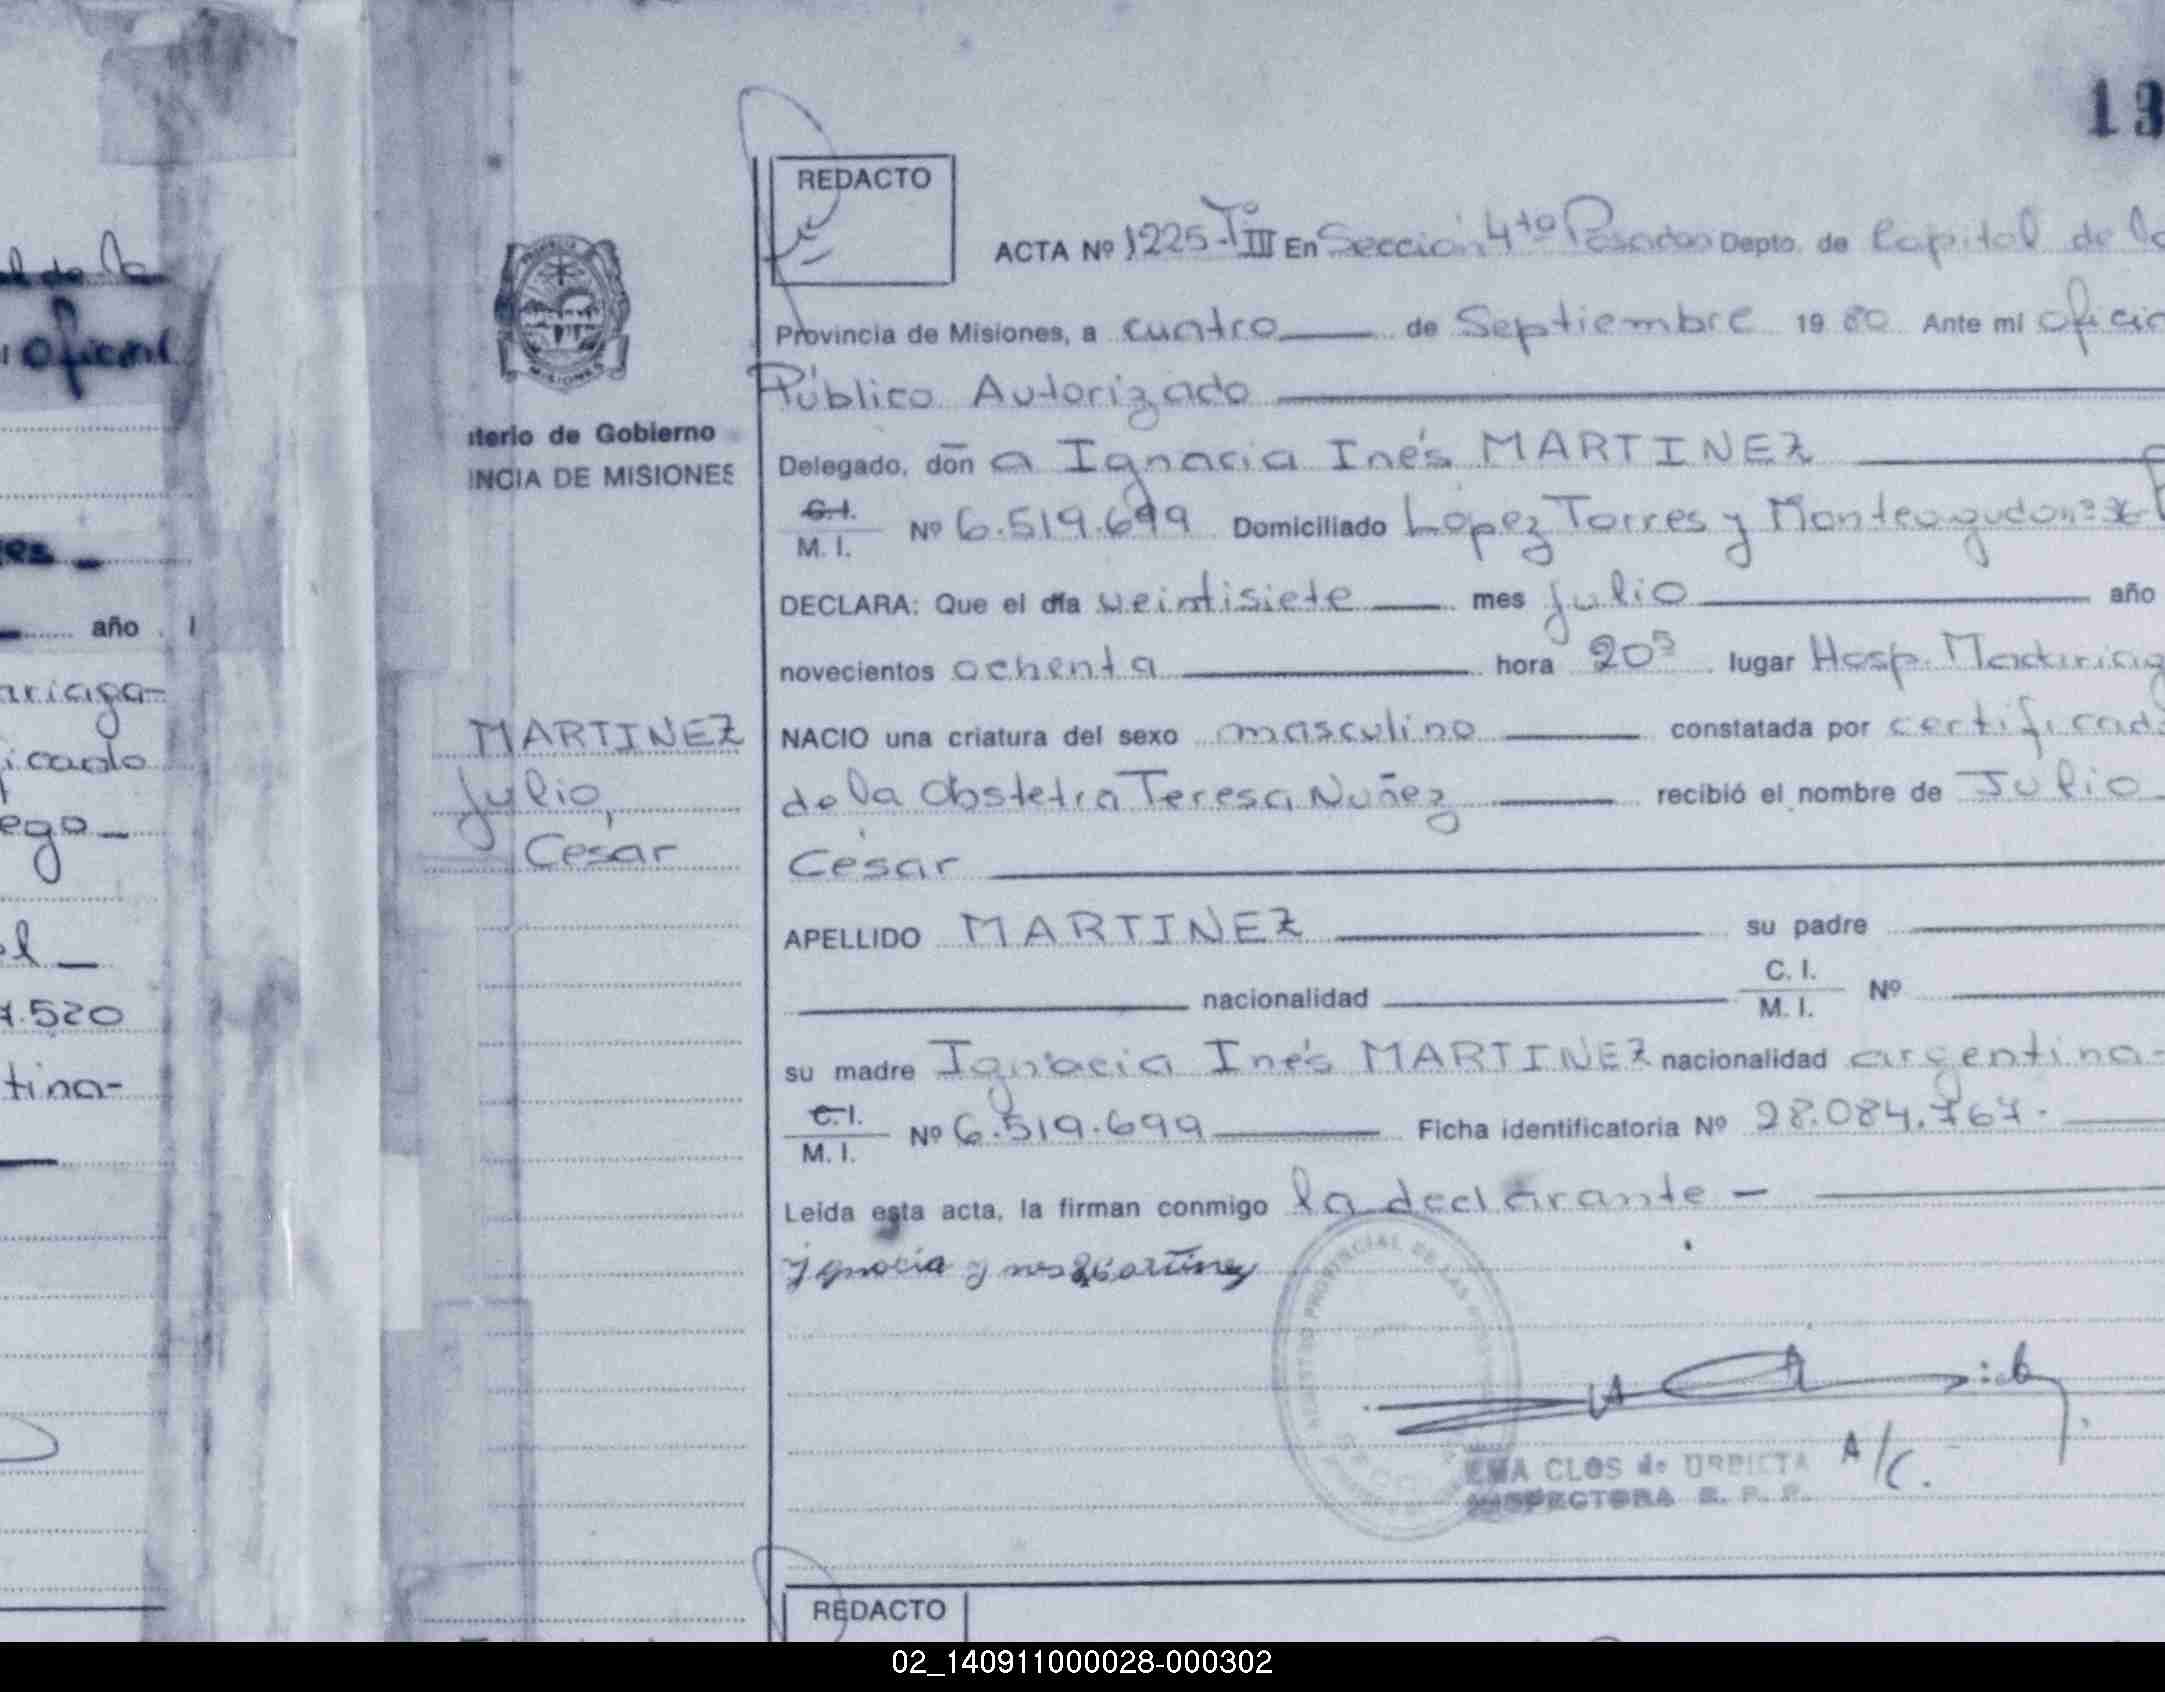 13
REDACTO
ACTA Nº 1225-Tº III En Sección 4ta Posadas Depto. de Capital de la
Provincia de Misiones, a cuatro de Septiembre 1980 Ante mi Oficia
Público Autorizado
Delegado, doña Ignacia Inés MARTINEZ
C.I.
M. I. Nº 6.519.699 Domiciliado López Torres y Monteagudo
DECLARA: Que el día veintisiete mes julio año
novecientos ochenta hora 20 lugar Hosp. Madariag
NACIO una criatura del sexo masculino constatada por certificado
de la Obstetra Teresa Nuñez recibió el nombre de Julio
César
APELLIDO MARTINEZ su padre
nacionalidad C. I.
M. I. Nº
su madre Ignacia Inés MARTINEZ nacionalidad argentina-
C.I.
M. I. Nº 6.519.699 Ficha identificatoria Nº 28.084.767.
Leída esta acta, la firman conmigo la declarante -
ignacia ynes Martinez
EMA CLOS de URBIETA A/C.
INSPECTORA R. P. P.
REDACTO
isterio de Gobierno
INCIA DE MISIONES
MARTINEZ
Julio,
César
al de la
Oficial
es -
año 1
ariaga-
icado
ego-
el -
7.520
tina-
02_140911000028-000302